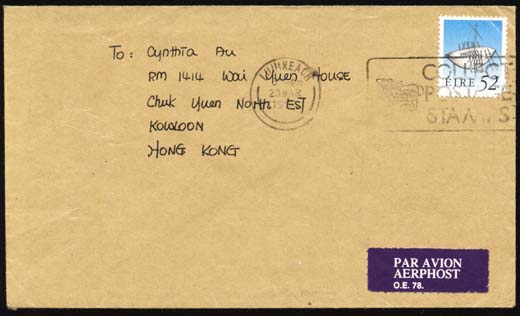 To: Cynthia Au
RM 1414 Wai Yuen House
Chuk Yuen North EST
Kowloon
Hong Kong
LUIMNEACH
23 MAR
COLLECT
POSTAGE
STAMPS
ÉIRE 52
PAR AVION
AERPHOST
O.E. 78.